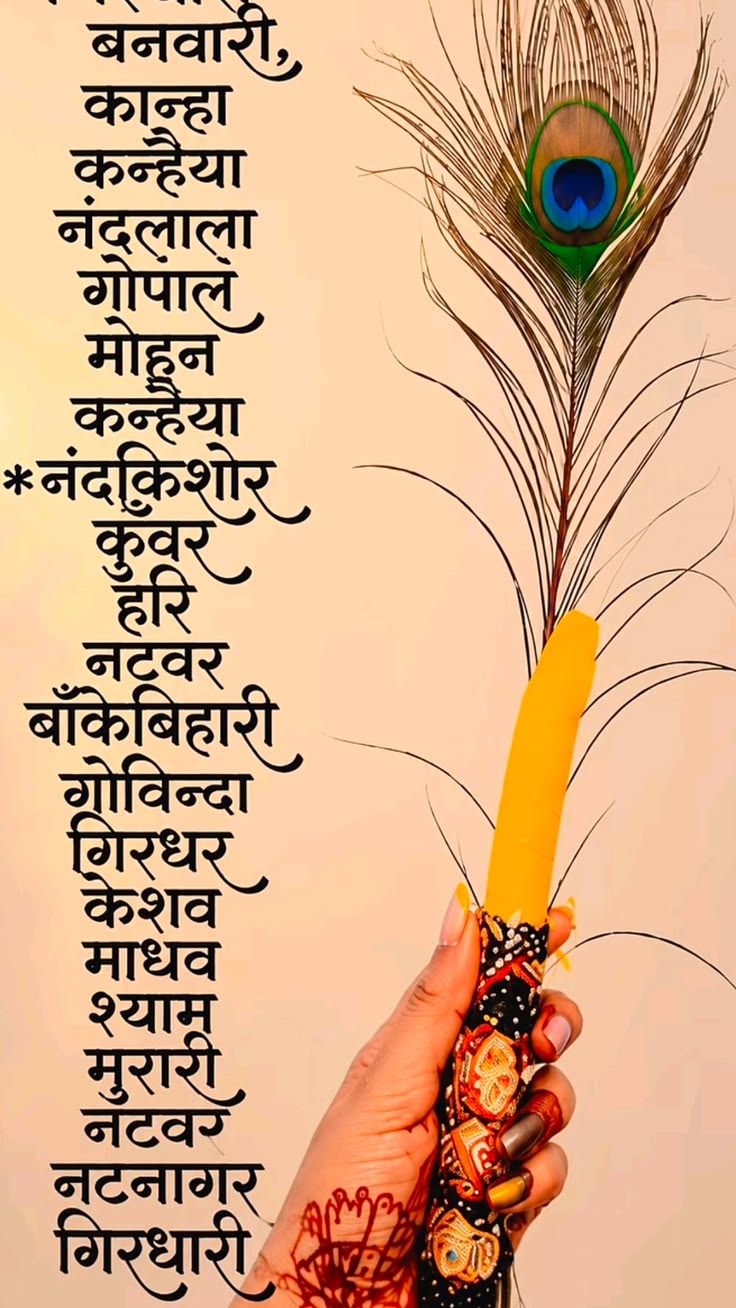 बनवारी,
कान्हा
कन्हैया
नंदलाला
गोपाल
मोहन
कन्हैया
*नंदकिशोर
कुंवर
हरि
नटवर
बाँकेबिहारी
गोविन्दा
गिरधर
केशव
माधव
श्याम
मुरारी
नटवर
नटनागर
गिरधारी